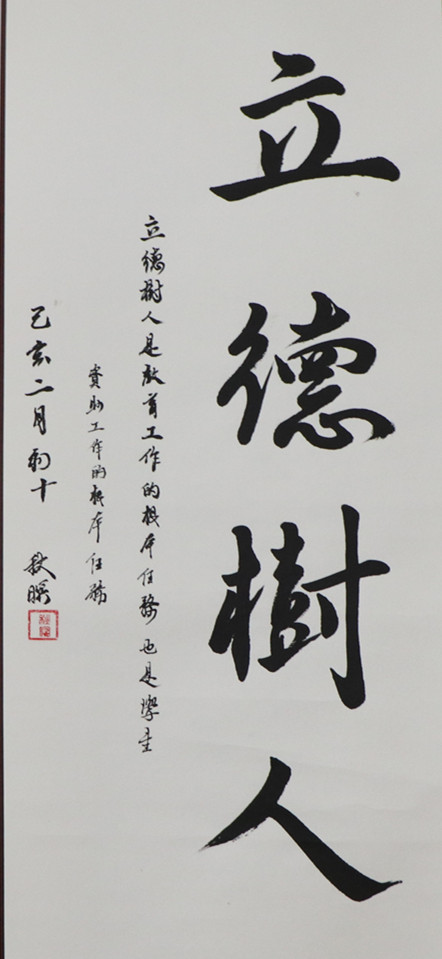 立德樹人
立德樹人是教育工作的根本任務也是學生
資助工作的根本任務
己亥二月初十